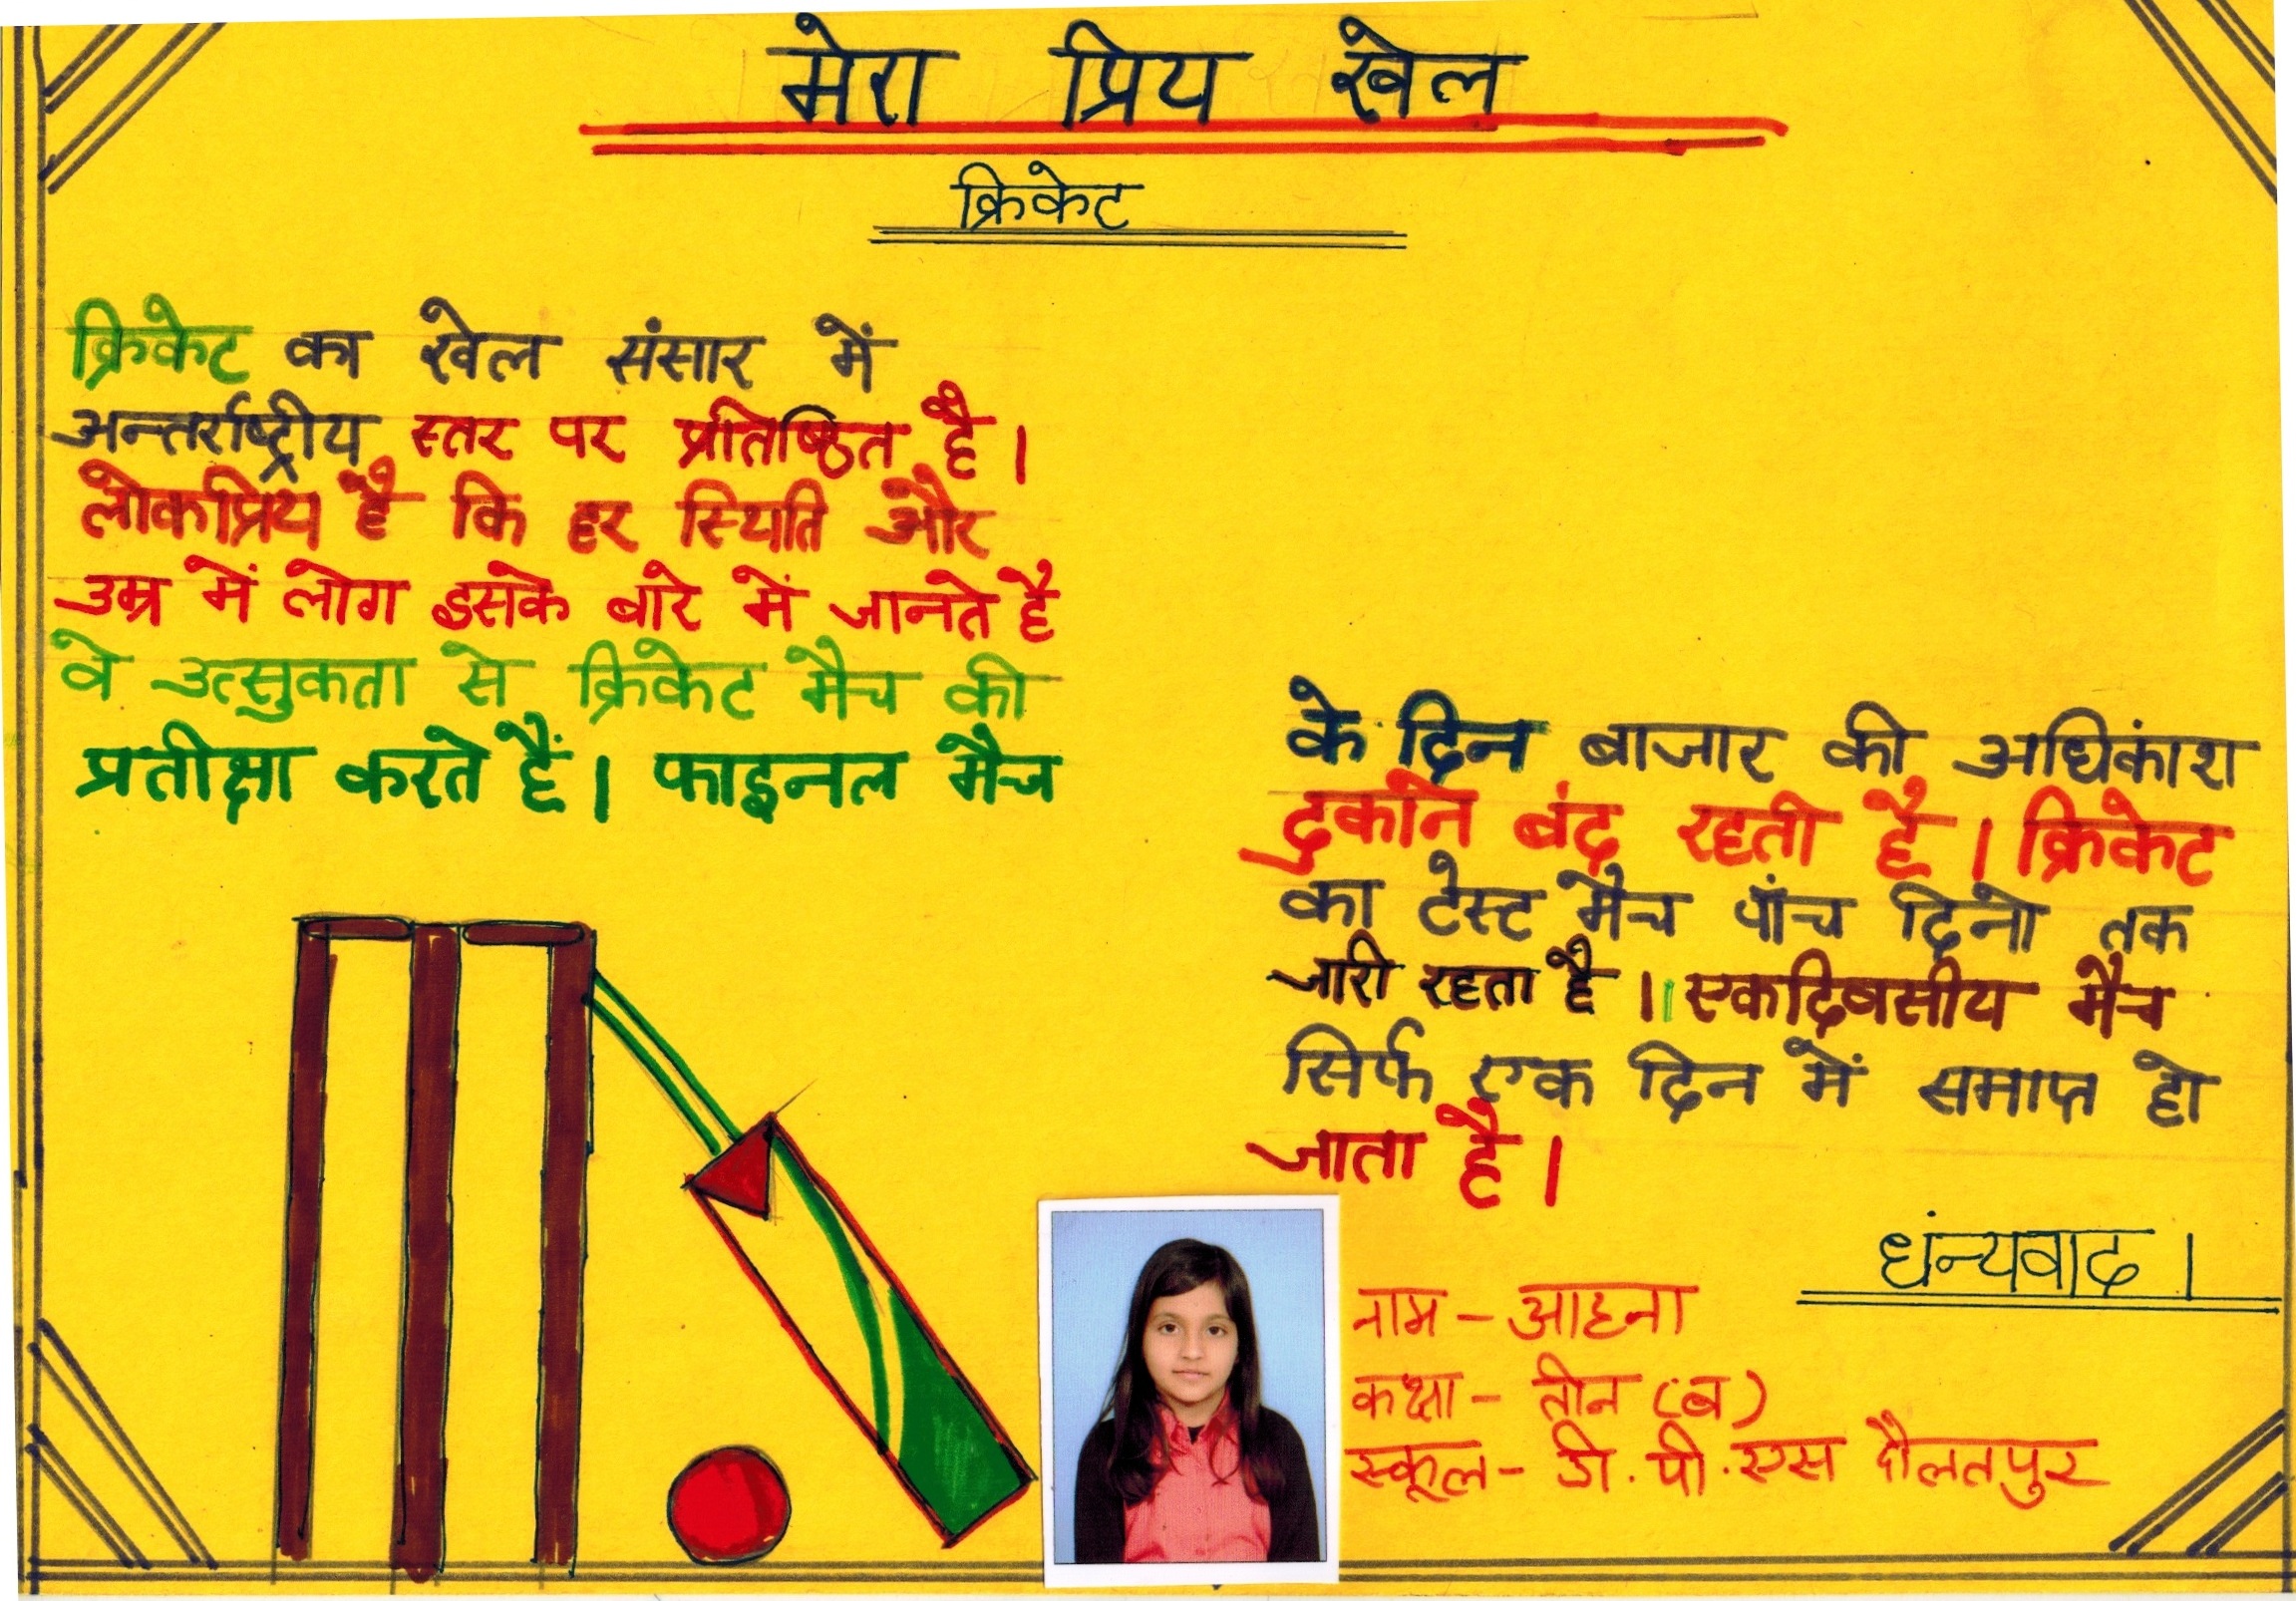 मेरा प्रिय खेल
क्रिकेट
क्रिकेट का खेल संसार में
अन्तर्राष्ट्रीय स्तर पर प्रतिष्ठित है।
लोकप्रिय है कि हर स्थिति और
उम्र में लोग इसके बारे में जानते है
वे उत्सुकता से क्रिकेट मैच की
प्रतीक्षा करते हैं। फाइनल मैच
के दिन बाजार की अधिकांश
दुकाने बंद रहती है। क्रिकेट
का टेस्ट मैच पांच दिनो तक
जारी रहता है। एकदिबसीय मैच
सिर्फ एक दिन में समाप्त हो
जाता है।
धंन्यवाद।
नाम - आहना
कक्षा - तीन (ब)
स्कूल - डी.पी.एस दौलतपुर